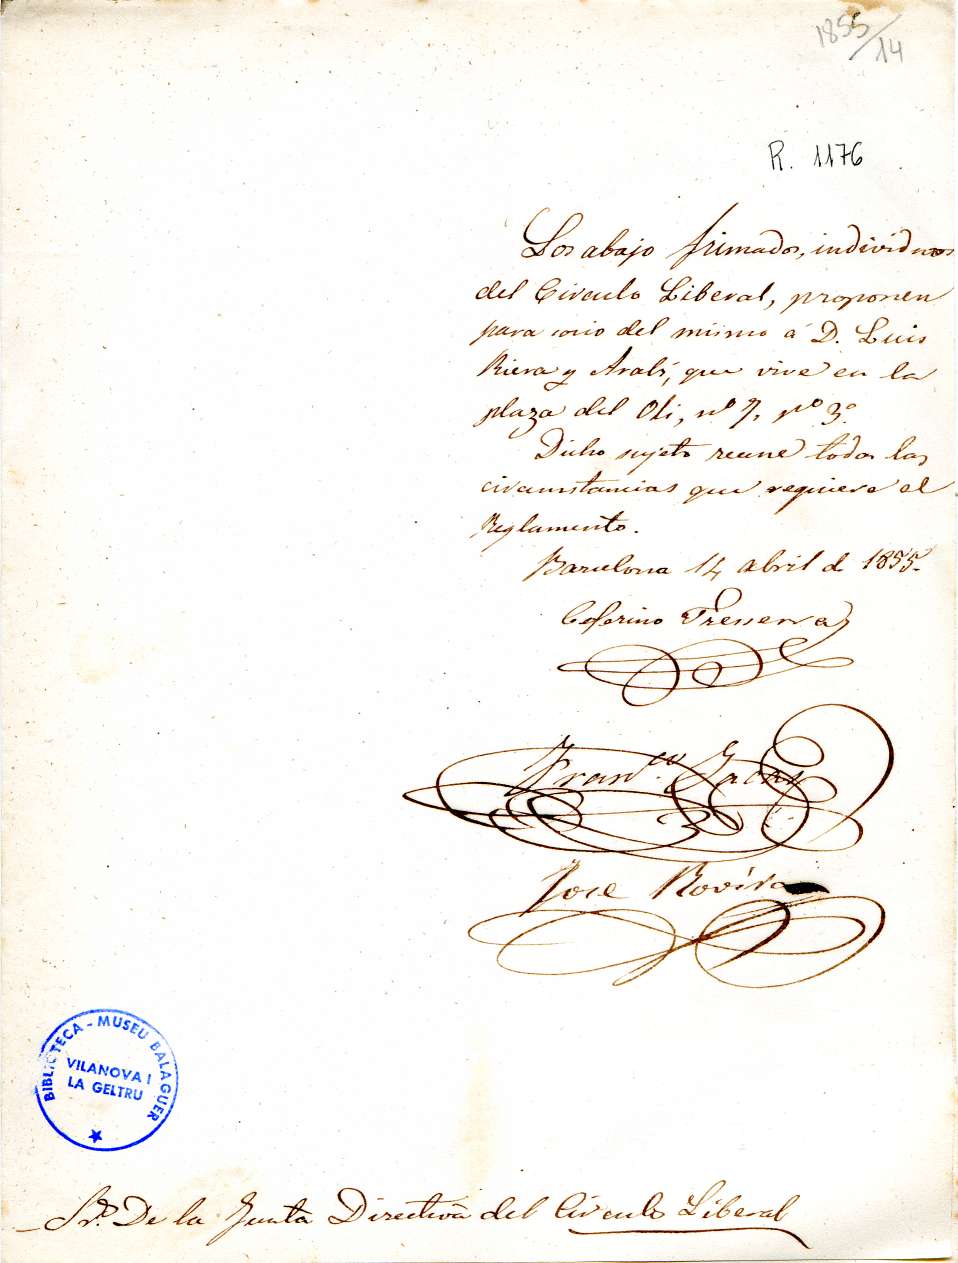 1855/14
R. 1176
Los abajo frimados, individuos
del Círculo Liberal, proponen
para socio del mismo á D. Luis
Riera y Arabí, que vive en la
plaza del Oli, nº 7, pº 3º.
Dicho sujeto reune todas las
circumstancias que requiere el
Reglamento.
Barcelona 14 abril de 1855.
Ceferino Tresserra
Franco.
José Rovira
BIBLIOTECA - MUSEU BALAGUER
VILANOVA I
LA GELTRU
Srs. De la Junta Directiva del Círculo Liberal